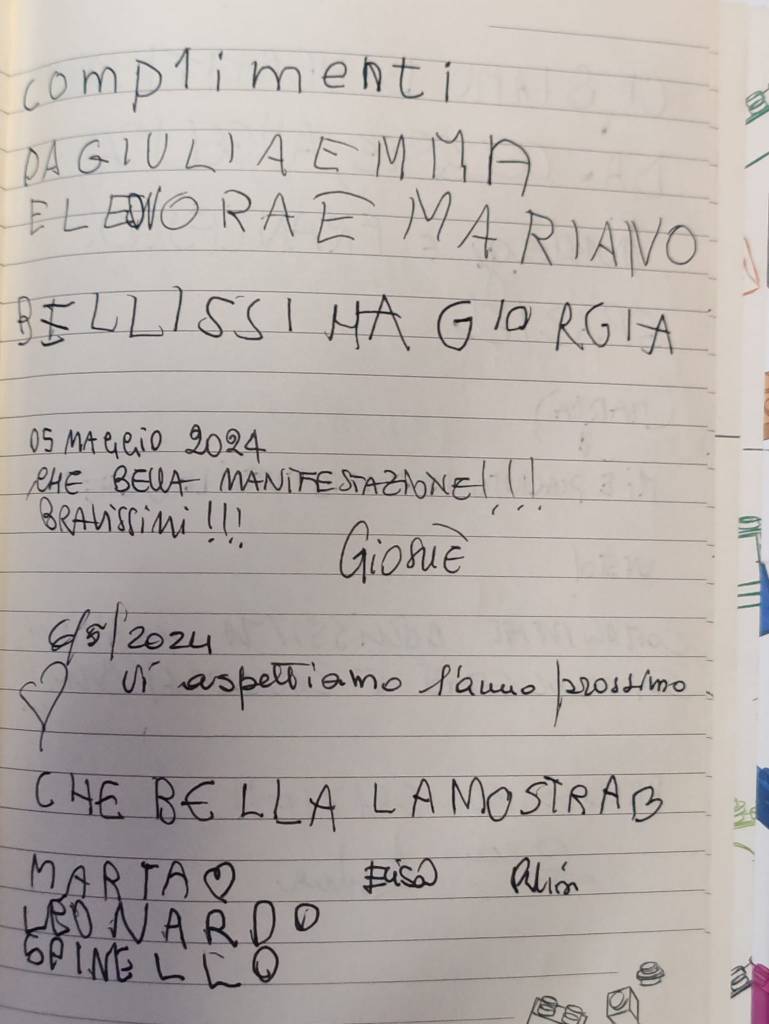 complimenti
DA GIULIA EMMA
ELEONORA E MARIANO
BELLISSIMA GIORGIA
05 MAGGIO 2024
CHE BELLA MANIFESTAZIONE!!!!
BRAVISSIMI!!!
GIOSUÈ
6/5/2024
Vi aspettiamo l'anno prossimo
CHE BELLA LA MOSTRA B
MARTA Elisa
LEONARDO
SPINELLO